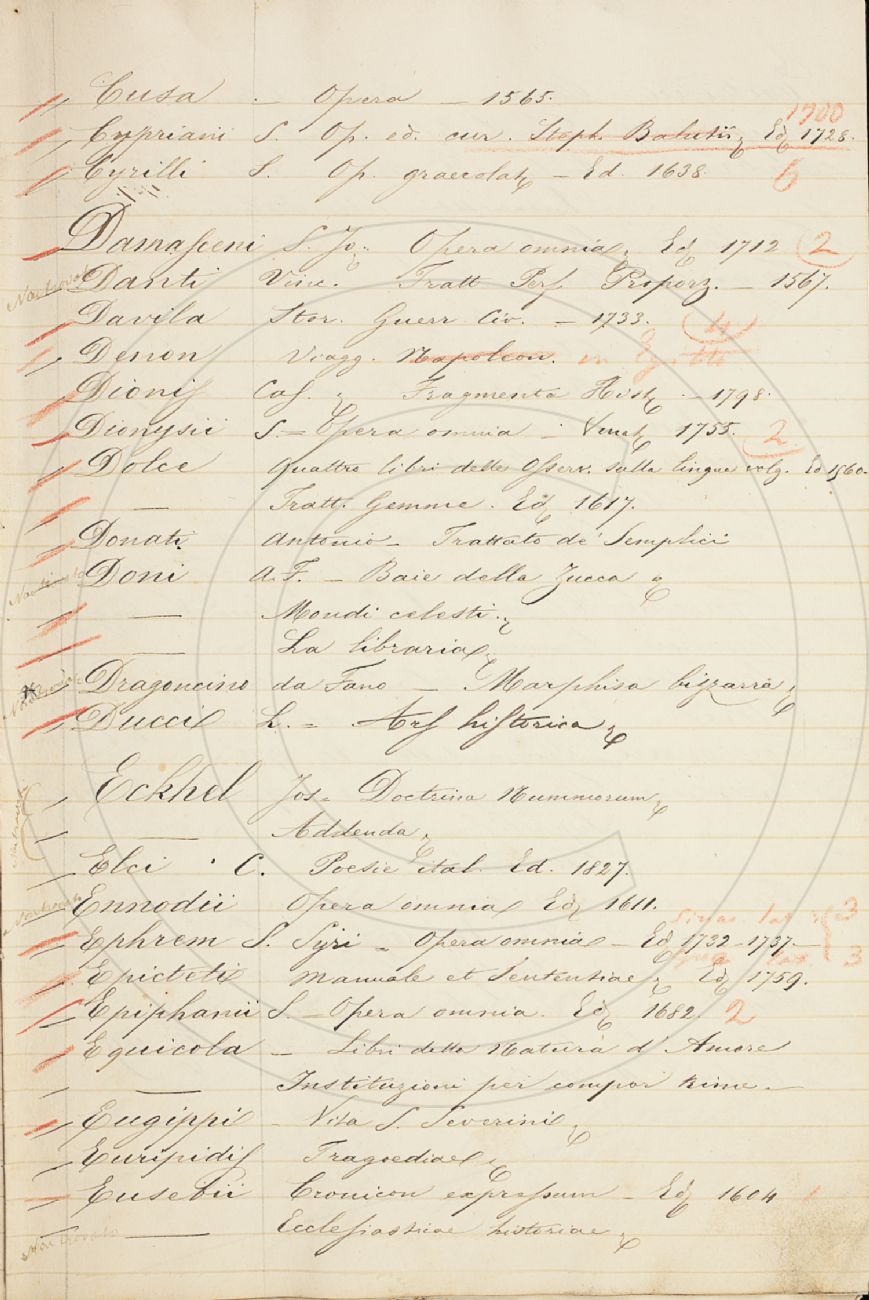 Cusa - Opera - 1565.
1700
Cypriani S. Op. ed. cur. Steph. Balutii Ed 1728.
Cyrilli S. Op. graecolat - Ed. 1638. 6
Damasceni S. Jo. Opera omnia, Ed 1712 2
Non trovato Danti Vinc. Tratt Perf. Proporz. - 1567.
Davila Stor. Guerr Civ. - 1733. 4
Denon Viagg. Napoleon. in Egitto
Dionis Cas. Fragmenta Hist - 1798.
Dionysii S. = Opera omnia - Venet 1755. 2
Dolce Quattro libri delle Osserv. sulla lingua volg. Ed 1560.
— Tratt. Gemme. Ed 1617.
Donati Antonio - Trattato de' Semplici
Non trovato Doni A. F. - Baie della Zucca
— Mondi celesti.
— La libraria
Non trovato Dragoncino da Fano - Marphisa bizzarra
Ducci L. = Ars historica
Eckhel Jos. Doctrina Nummorum
— Addenda
Elci C. Poesie ital. Ed. 1827.
Non trovato Ennodii Opera omnia Ed 1611.
Siriac. lat. 3
Ephrem S. Syri = Opera omnia - Ed 1732-1737. -
lat. 3
Epicteti Manuale et Sententiae, Ed 1759.
Epiphanii S. - Opera omnia. Ed 1682. 2
Equicola - Libri della Natura d' Amore
— Instituzioni per compor Rime. -
Eugippi - Vita S. Severini
Euripidis Tragoediae
Eusebii Cronicon expressum - Ed 1604 1
Non trovato — Ecclesiasticae historiae